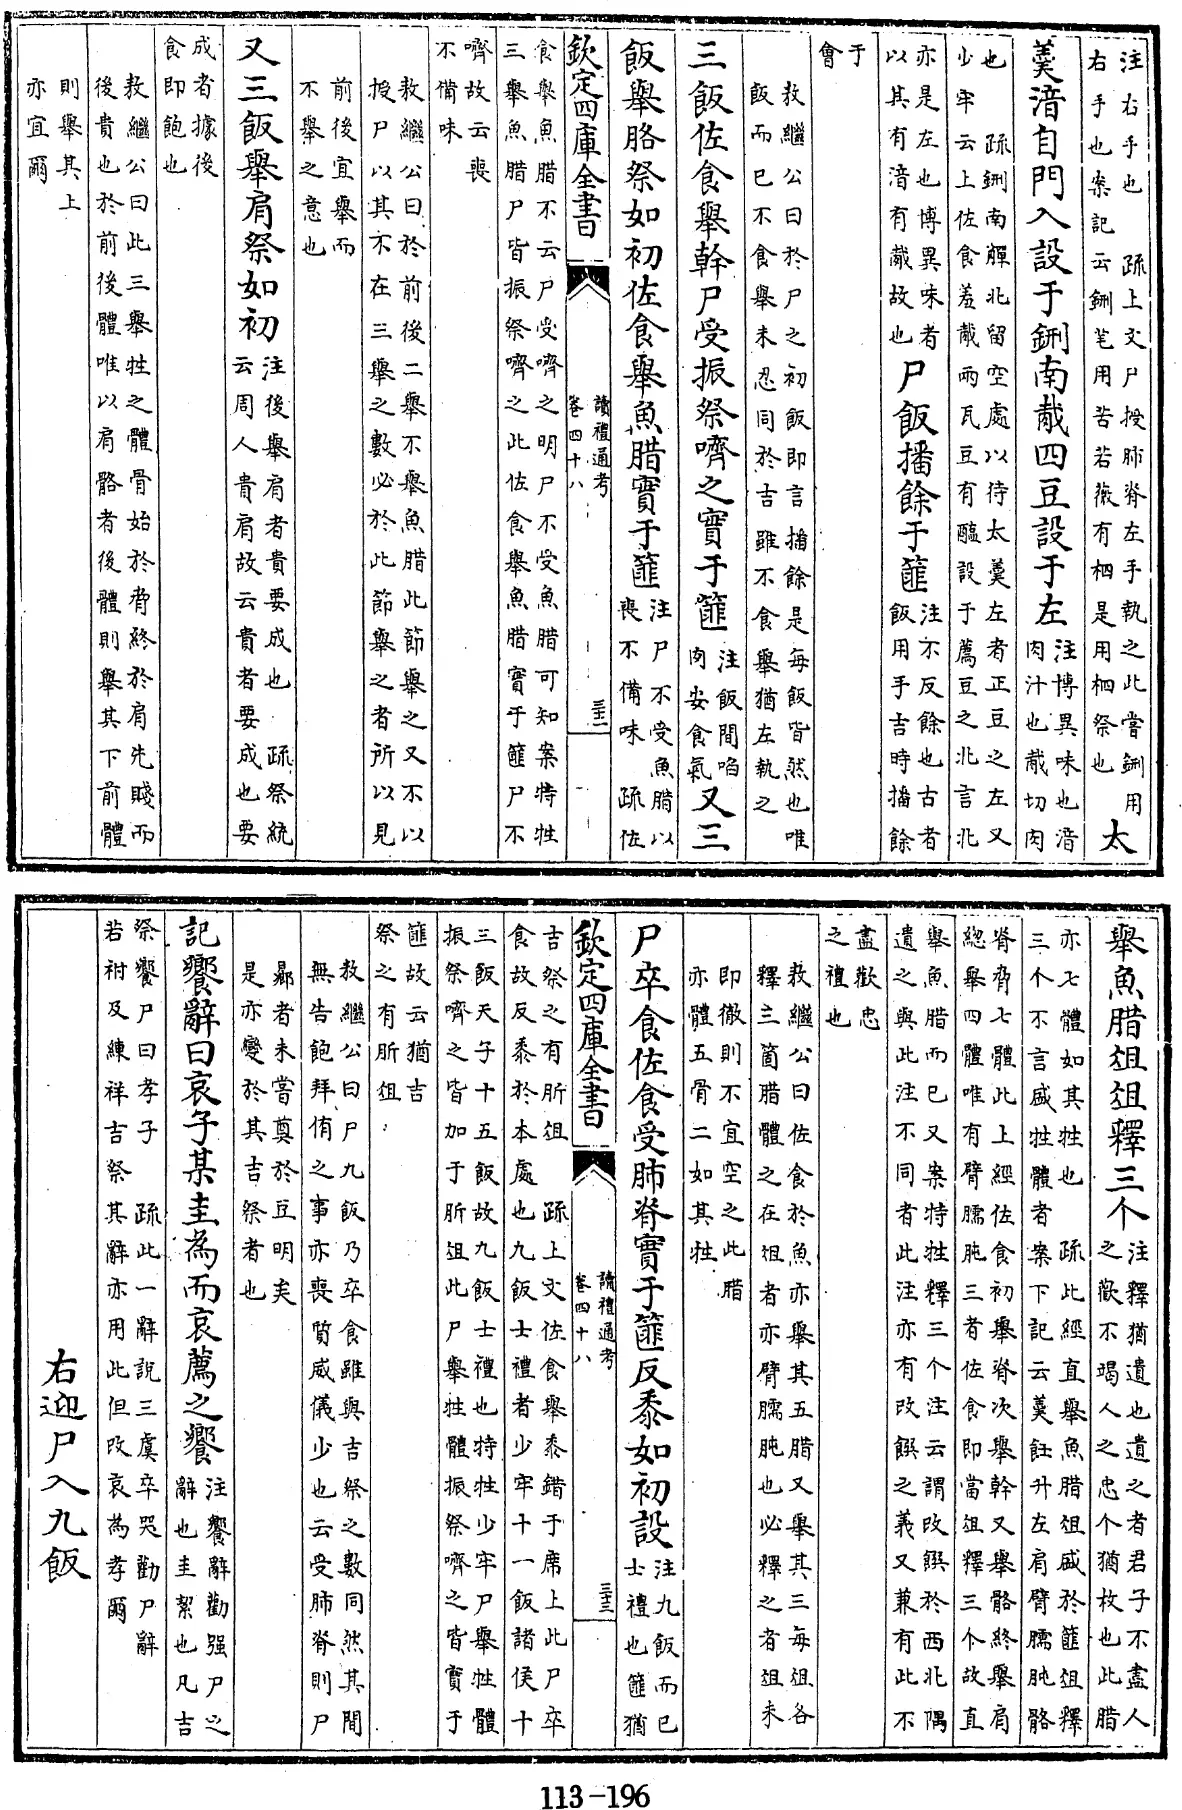 注右手也　疏上文尸授肺脊左手執之此嘗鉶用
右手也案記云鉶芼用苦若薇有柶是用柶祭也
太
羹湆自門入設于鉶南胾四豆設于左
注博異味也湆
肉汁也胾切肉
也　疏鉶南觶北留空處以待太羹左者正豆之左又
少牢云上佐食羞胾兩瓦豆有醢設于薦豆之北言北
亦是左也博異味者
以其有湆有胾故也
尸飯播餘于篚
注不反餘也古者
飯用手吉時播餘
于
會
敖繼公曰於尸之初飯即言播餘是每飯皆然也唯
飯而已不食舉未忍同於吉雖不食舉猶左執之
三飯佐食舉幹尸受振祭嚌之實于篚
注飯間啗
肉安食氣
又三
飯舉胳祭如初佐食舉魚腊實于篚
注尸不受魚腊以
喪不備味　疏佐
欽定四庫全書
讀禮通考
卷四十八
三十二
食舉魚腊不云尸受嚌之明尸不受魚腊可知案特牲
三舉魚腊尸皆振祭嚌之此佐食舉魚腊實于篚尸不
嚌故云喪
不備味
敖繼公曰於前後二舉不舉魚腊此節舉之又不以
授尸以其不在三舉之數必於此節舉之者所以見
前後宜舉而
不舉之意也
又三飯舉肩祭如初
注後舉肩者貴要成也　疏祭統
云周人貴肩故云貴者要成也要
成者據後
食即飽也
敖繼公曰此三舉牲之體骨始於脅終於肩先賤而
後貴也於前後體唯以肩胳者後體則舉其下前體
則舉其上
亦宜爾
舉魚腊俎俎釋三个
注釋猶遺也遺之者君子不盡人
之歡不竭人之忠个猶枚也此腊
亦七體如其牲也　疏此經直舉魚腊俎盛於篚俎釋
三个不言盛牲體者案下記云羹飪升左肩臂臑肫胳
脊脅七體此上經佐食初舉脊次舉幹又舉胳終舉肩
總舉四體唯有臂臑肫三者佐食即當俎釋三个故直
舉魚腊而已又案特牲釋三个注云謂改饌於西北隅
遺之與此注不同者此注亦有改饌之義又兼有此不
盡歡忠
之禮也
敖繼公曰佐食於魚亦舉其五腊又舉其三每俎各
釋三箇腊體之在俎者亦臂臑肫也必釋之者俎未
即徹則不宜空之此腊
亦體五骨二如其牲
尸卒食佐食受肺脊實于篚反黍如初設
注九飯而已
士禮也篚猶
欽定四庫全書
讀禮通考
卷四十八
三十三
吉祭之有肵俎　疏上文佐食舉黍錯于席上此尸卒
食故反黍於本處也九飯士禮者少牢十一飯諸侯十
三飯天子十五飯故九飯士禮也特牲少牢尸舉牲體
振祭嚌之皆加于肵俎此尸舉牲體振祭嚌之皆實于
篚故云猶吉
祭之有肵俎
敖繼公曰尸九飯乃卒食雖與吉祭之數同然其間
無告飽拜侑之事亦喪質威儀少也云受肺脊則尸
曏者未嘗奠於豆明矣
是亦變於其吉祭者也
記饗辭曰哀子某圭為而哀薦之饗
注饗辭勸强尸之
辭也圭絜也凡吉
祭饗尸曰孝子　疏此一辭說三虞卒哭勸尸辭
若祔及練祥吉祭其辭亦用此但改哀為孝爾
右迎尸入九飯
113-196